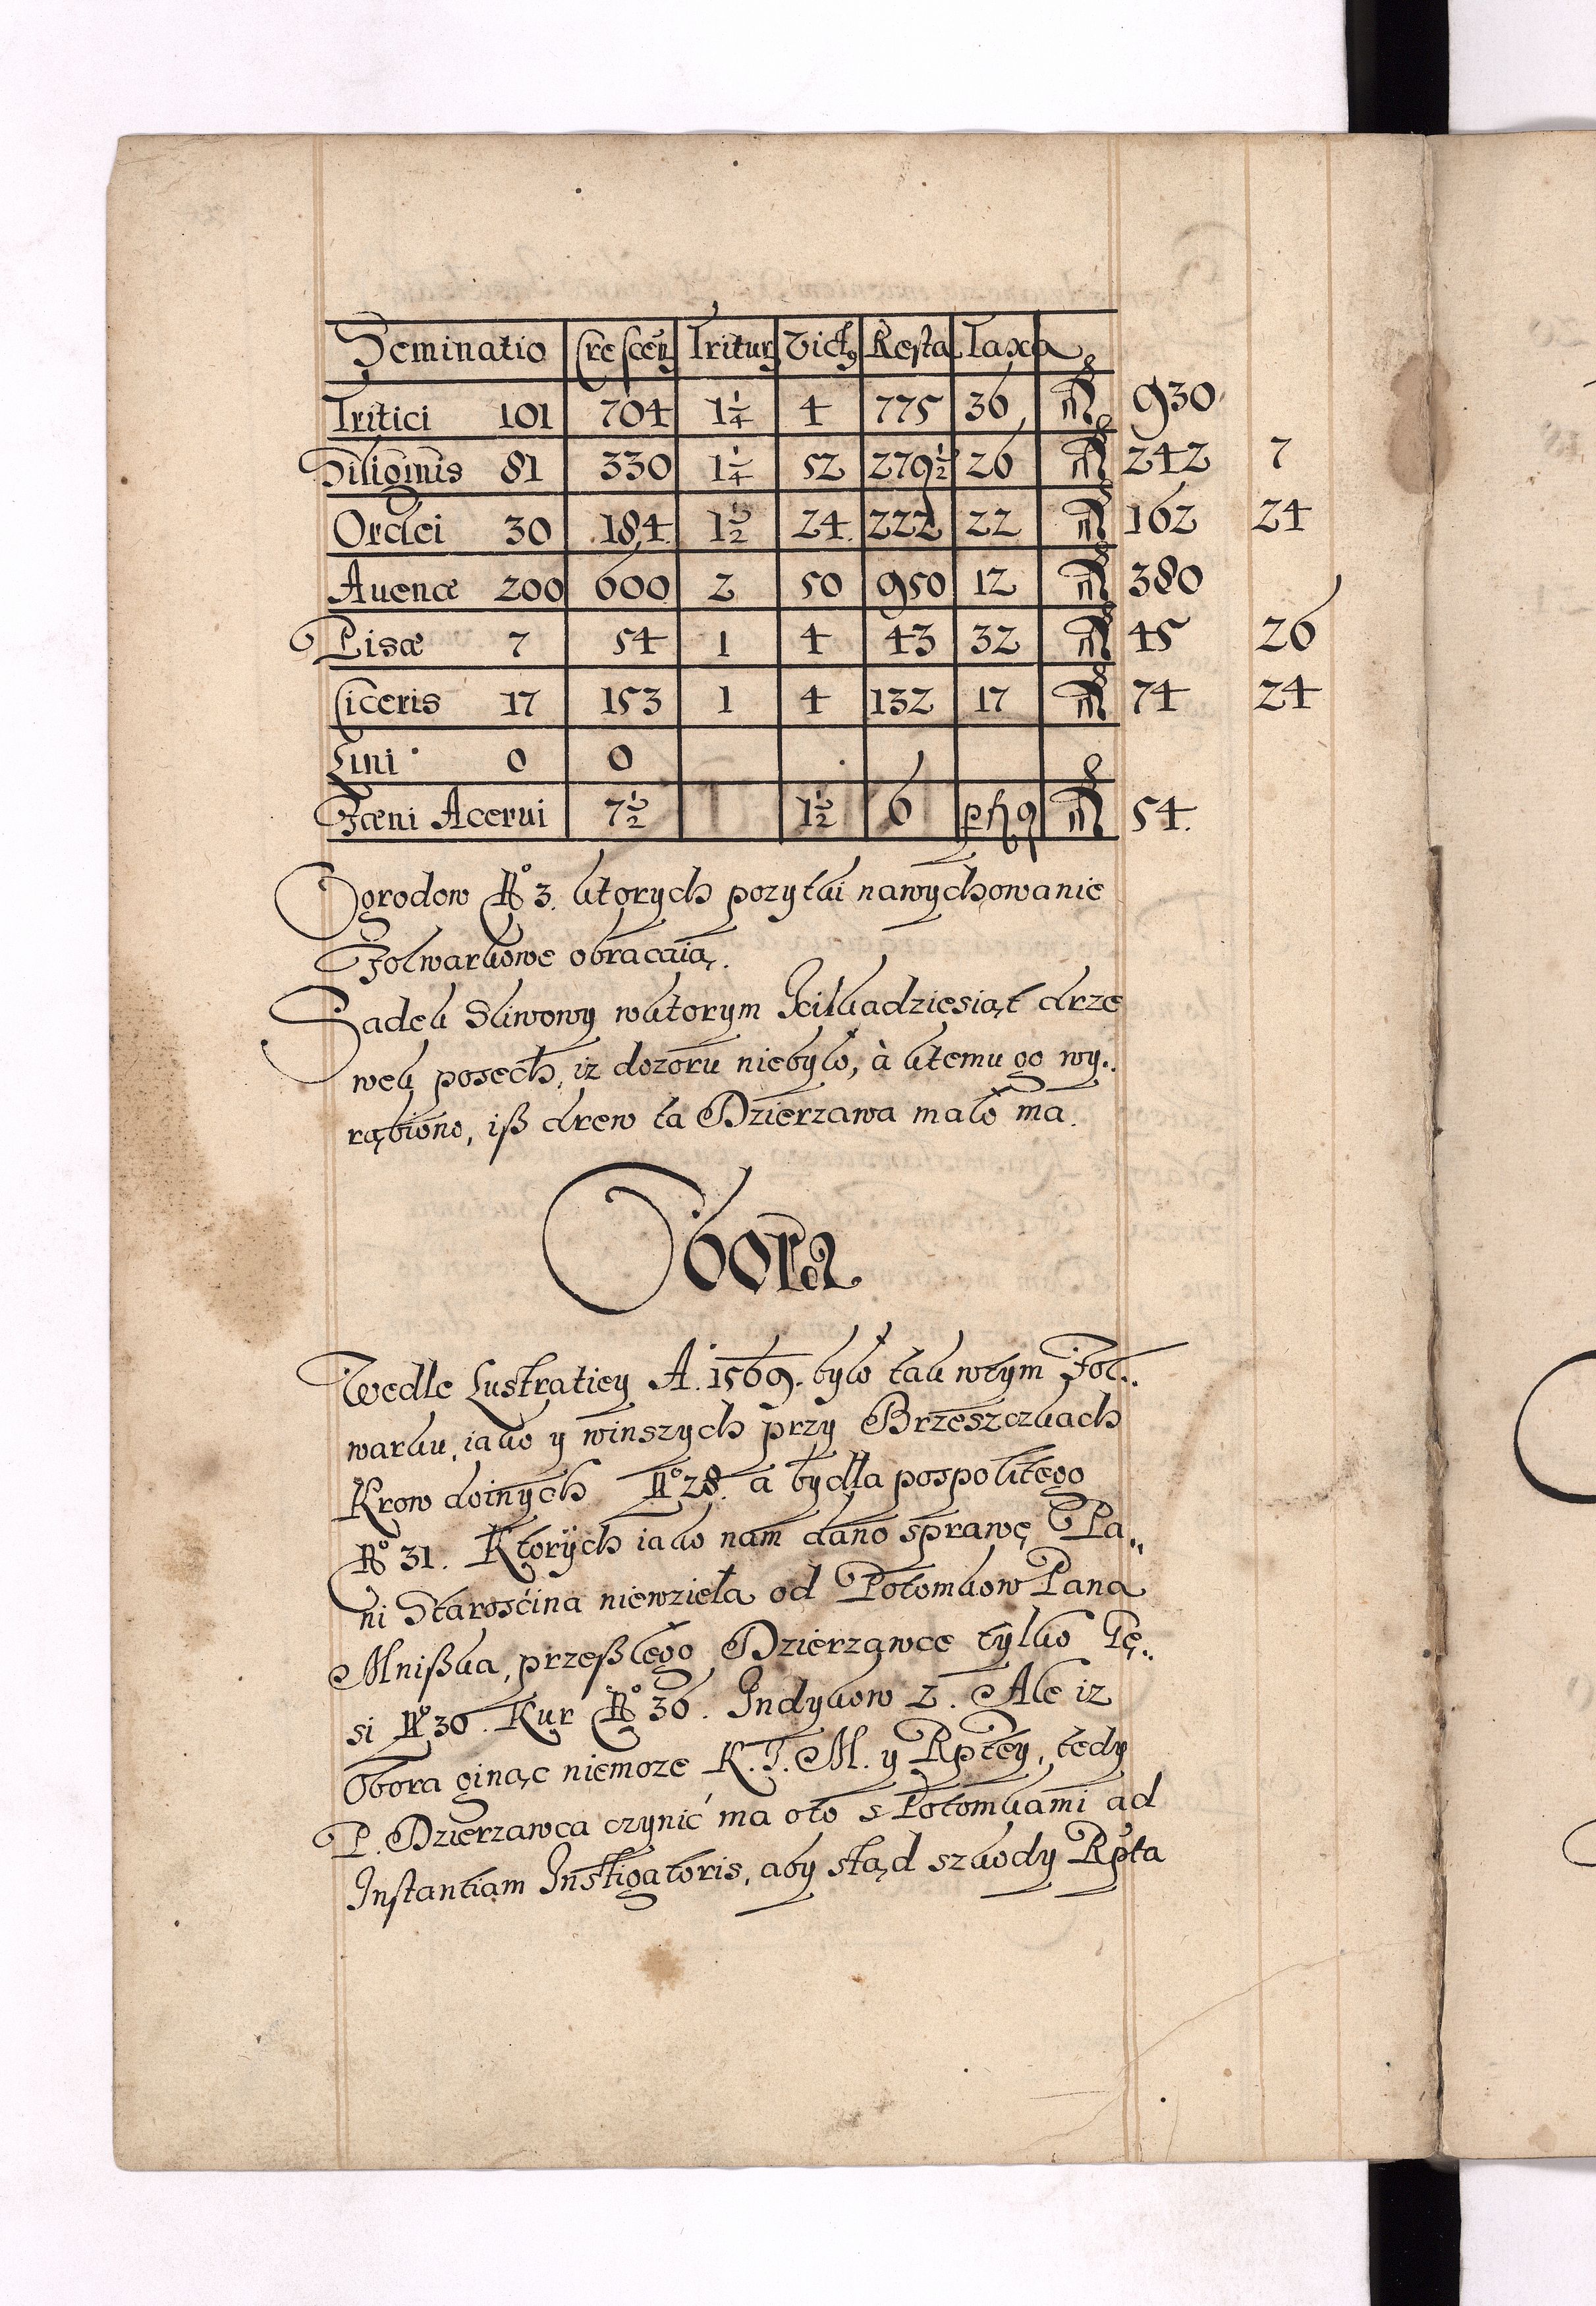 Seminatio Crescen̄ Tritur Vict9 Resta Taxa
Tritici 101 704 1 1/4 4 775 36 fl 930
Siliginis 81 330 1 1/4 52 279 1/2 26 fl 242 7
Ordei 30 184 1 1/2 24 222 22 fl 162 24
Auenæ 200 600 2 50 950 12 fl 380
Pisæ 7 54 1 4 43 32 fl 45 26
Ciceris 17 153 1 4 132 17 fl 74 24
Lini 0 0
Fæni Acerui 7 1/2 1 1/2 6 p fl 9 fl 54.
Ogrodow No 3. ktorych pozytki nawychowanie
Folwarkowe obracaią.
Sadek Sliwowy wktorym Kilkadziesiąt drze
wek posechł, iz dozoru niebyło, à ktemu go wy..
rąbiono, iß drew ta Dzierzawa mało ma.
Obora
Wedle Lustratiey A. 1569. było tak wtym Fol..
warku, iako y winszych przy Brzeszczkach
Krow doinych No 28. a bydła pospolitego
No 31. Ktorÿch iako nam dano sprawę Pa..
ni Starosćina niewzieła od Potomkow Pana
Mnißka, przeßłego Dzierzawce tylko Gę..
si No 30. Kur No 36. Indykow 2. Ale iz
Obora ginąc niemoze K. J. M. y Rptey, tedy
P. Dzierzawca czynić ma oto s Potomkami ad
Instantiam Instigatoris, aby stąd szkody Rpta